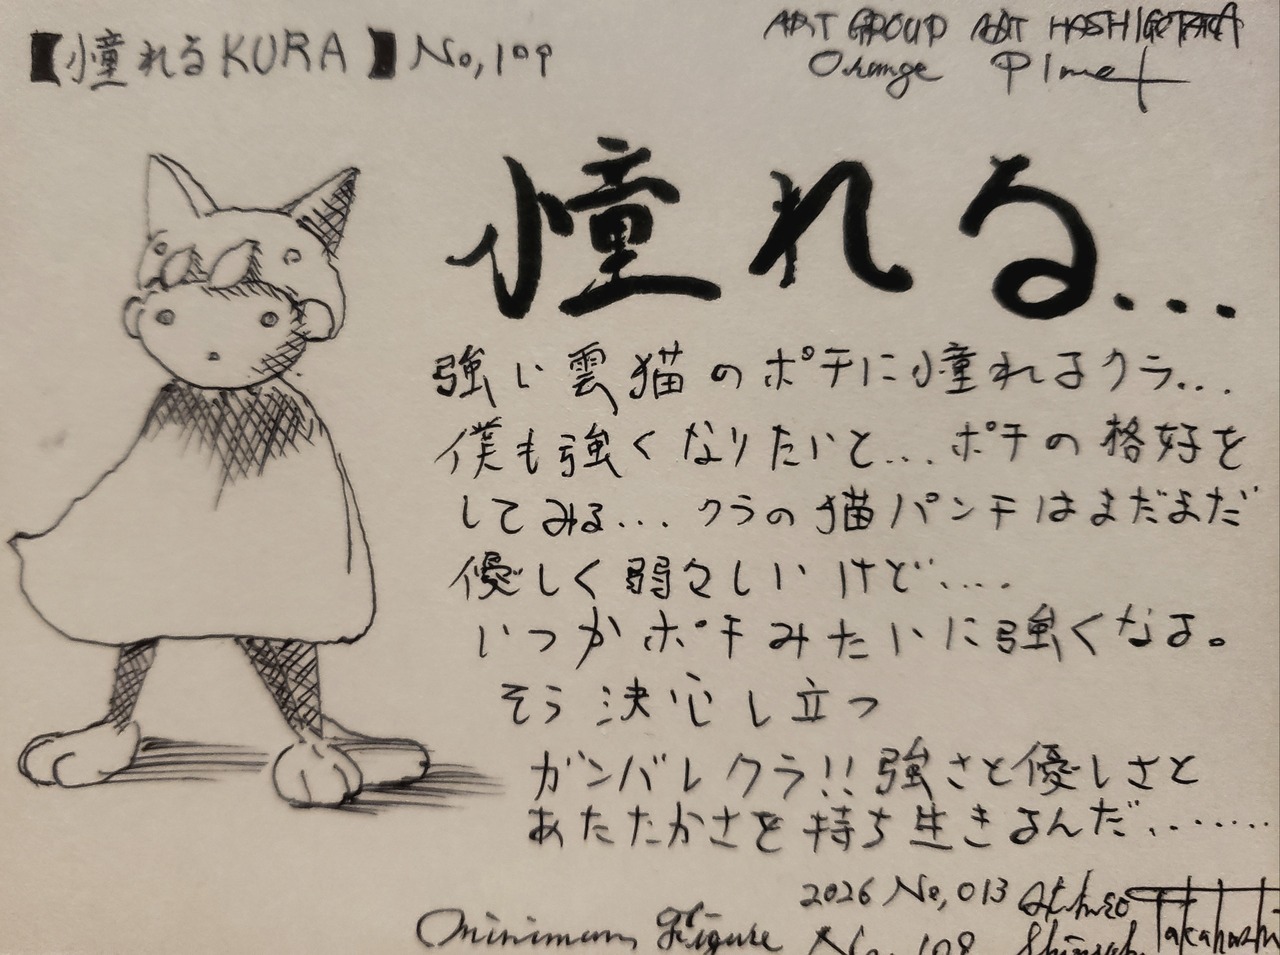 【憧れるKURA】No,109
ART GROUP ART HASHIGOTAKA
Orange Planet
憧れる...
強い雲猫のポチに憧れるクラ...
僕も強くなりたいと...ポチの格好を
してみる...クラの猫パンチはまだまだ
優しく弱々しいけど....
いつかポチみたいに強くなる。
そう決心し立つ
ガンバレクラ!!強さと優しさと
あたたかさを持ち生きるんだ........
2026 No,013
Takahashi
Minimum Figure No. 109